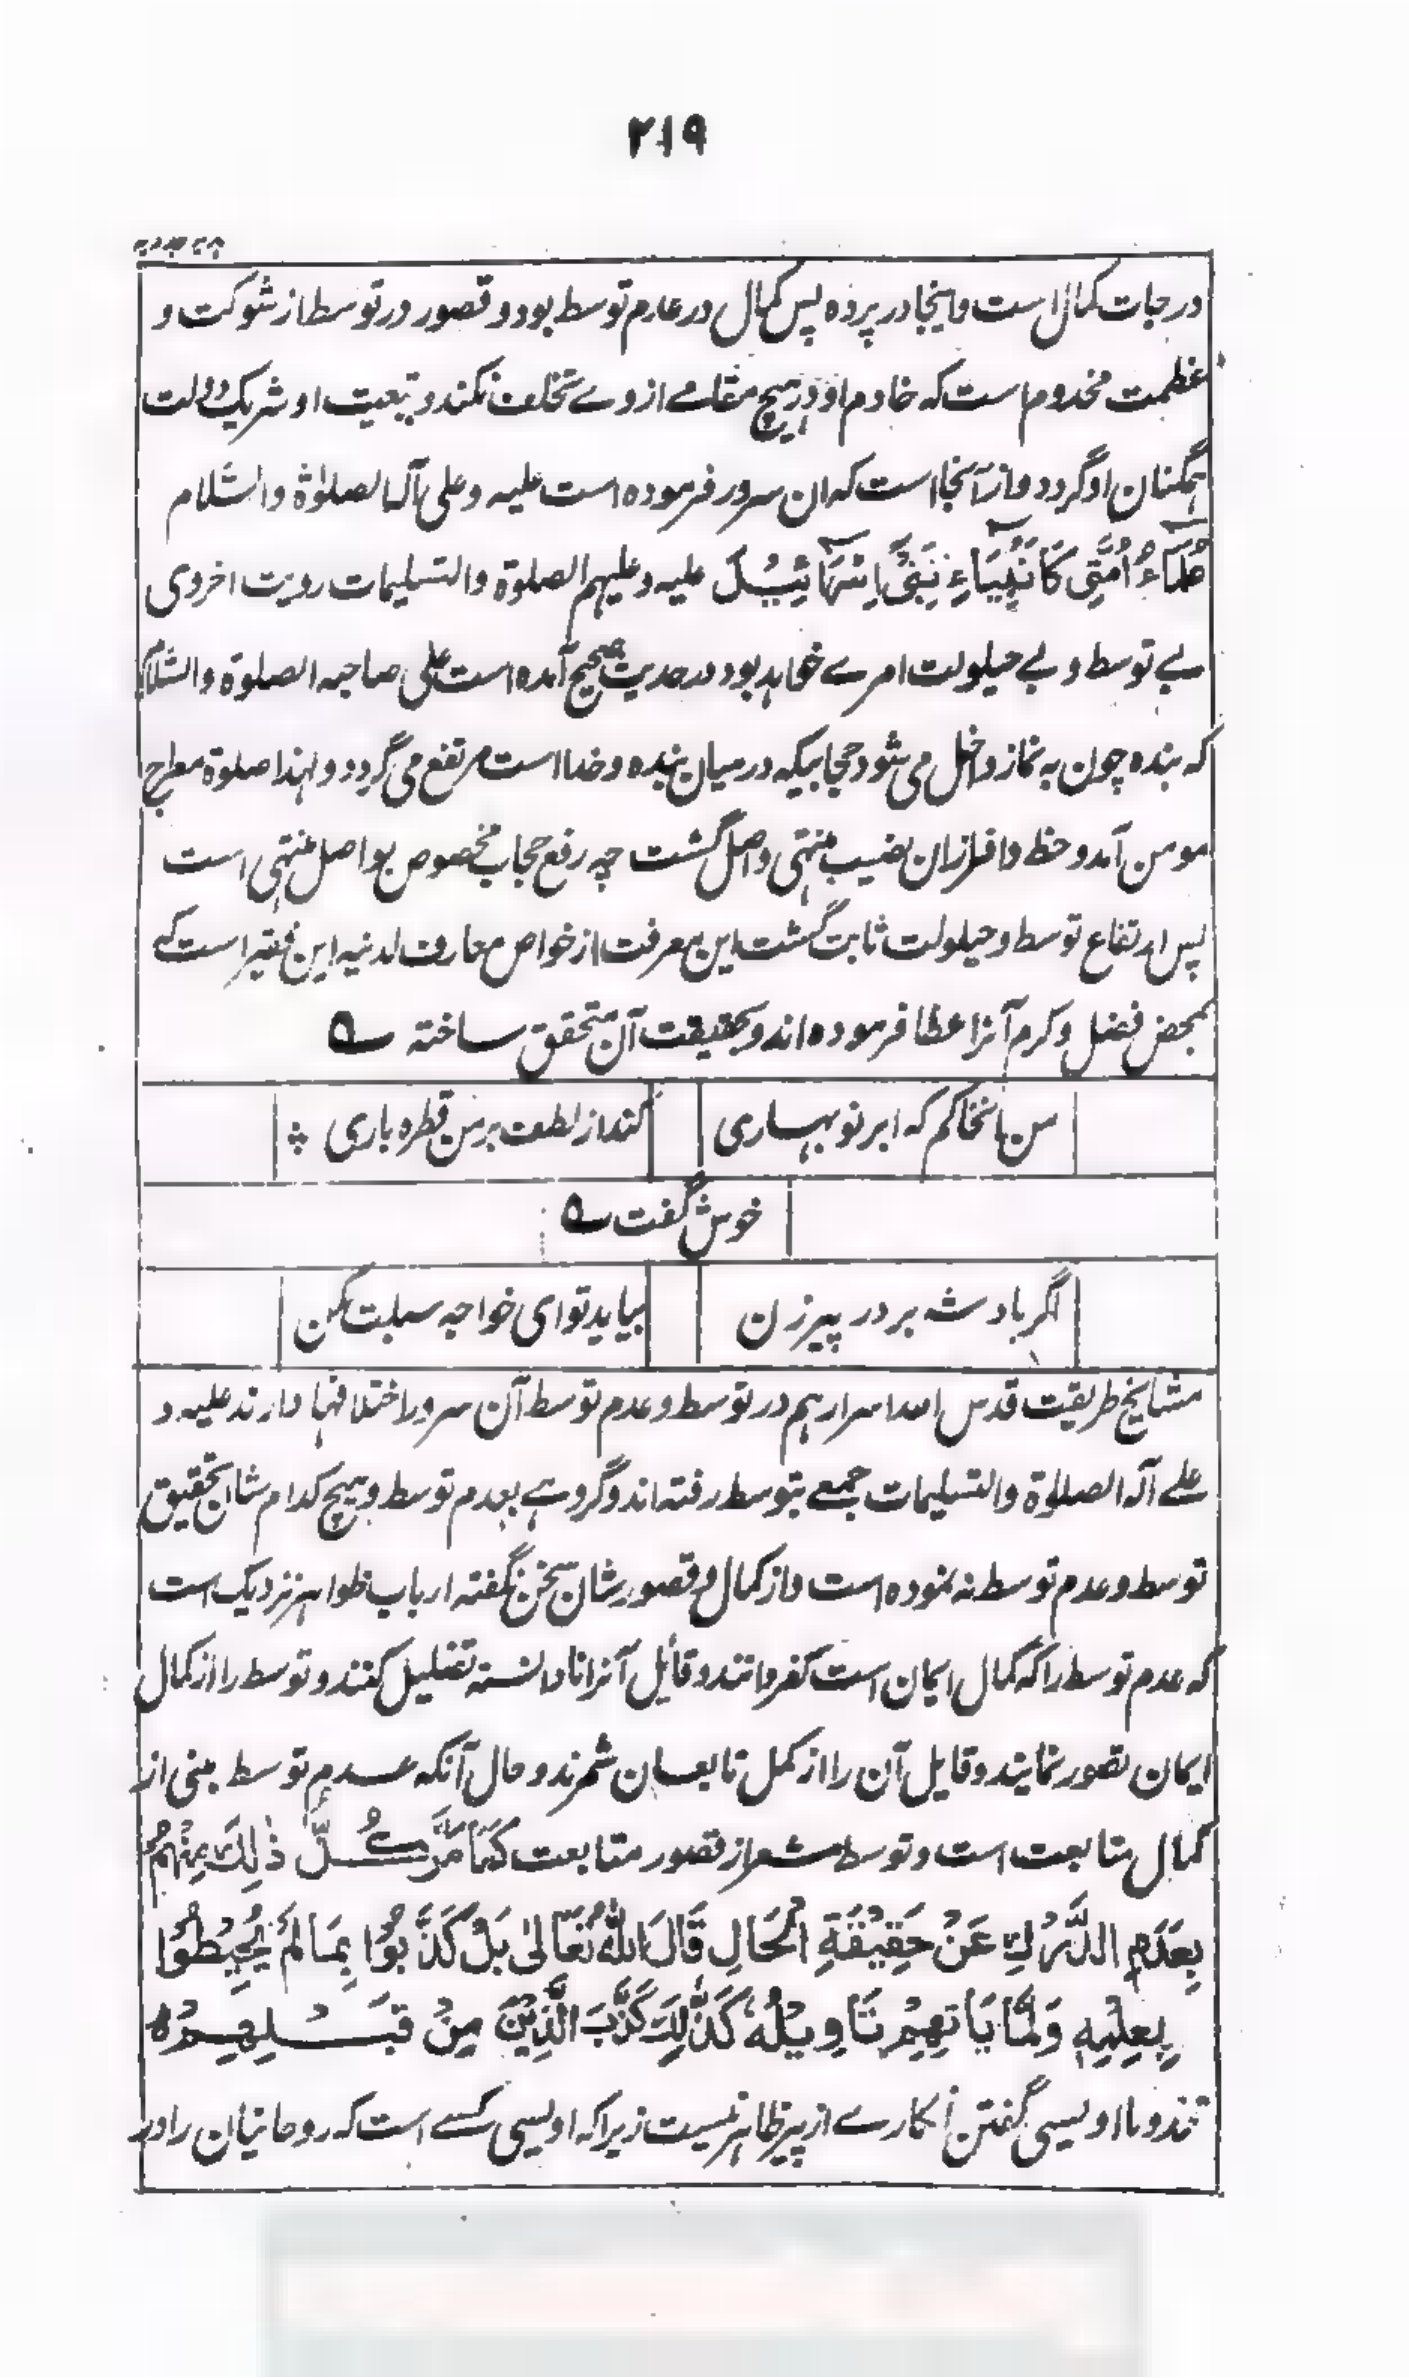 ۲۱۹
هدیه مجددیه
درجات کمال است و اینجا در پرده پس کمال در عدم توسط بود و قصور در توسط از شوکت و
عظمت مخدوم است که خادم او در هیچ مقامے از وے تخلف نکند و بتبعیت او شریک دولت
همگنان او گردد و از آنجا است که ان سرور فرموده است علیه و علی آله الصلوٰة والسّلام
عُلَمَآءُ اُمَّتِی کَاَنْبِیَاءِ بَنِیْ اِسْرَائِیْلَ علیه و علیهم الصلوٰة والتسلیمات رویت اخروی
بے توسط و بے حیلولت امرے خواهد بود در حدیث صحیح آمده است علی صاحبه الصلوٰة والسّلام
که بنده چون به نماز داخل می شود حجابیکه در میان بنده و خدا است مرتفع می گردد و لهذا صلوٰة معراج
مومن آمد و حظ وافر ازان نصیب منتهی واصل گشت چه رفع حجاب مخصوص بواصل منتهی است
پس ارتفاع توسط و حیلولت ثابت گشت این معرفت از خواص معارف لدنیه این فقیر است که
بمحض فضل و کرم آنرا عطا فرموده اند و بحقیقت آن متحقق ساخته ؎
من آنخاکم که ابر نو بهاری
کند از لطف بر من قطره باری ؞
خوش گفت ؎
اگر بادشه بر در پیر زن
بیاید تو ای خواجه سبلت مکن
مشایخ طریقت قدس الله اسرارهم در توسط و عدم توسط آن سرور اختلافها دارند علیه و
علے آله الصلوٰة والتسلیمات جمعے بتوسط رفته اند و گروهے بعدم توسط و هیچ کدام شان تحقیق
توسط و عدم توسط نه نموده است و از کمال و قصور شان سخن نگفته ارباب ظواهر نزدیک است
که عدم توسط را که کمال ایمان است کفر دانند و قایل آنرا نادانسته تضلیل کنند و توسط را از کمال
ایمان تصور نمایند و قایل آن را از کمل تابعان شمرند و حال آنکه عدم توسط مبنی از
کمال متابعت است و توسط مشعر از قصور متابعت کَمَا مَرَّ کُلُّ ذٰلِکَ مِنْهُمْ
بِعَدَمِ الدَّرْكِ عَنْ حَقِیْقَةِ الْحَالِ قَالَ اللّٰهُ تَعَالٰی بَلْ کَذَّبُوْا بِمَا لَمْ یُحِیْطُوْا
بِعِلْمِهٖ وَلَمَّا یَاْتِهِمْ تَاْوِیْلُهٗ کَذٰلِكَ کَذَّبَ الَّذِیْنَ مِنْ قَبْلِهِمْ ه
مخدوما اویسی گفتن انکارے از پیر ظاهر نیست زیرا که اویسی کسے است که روحانیان را در